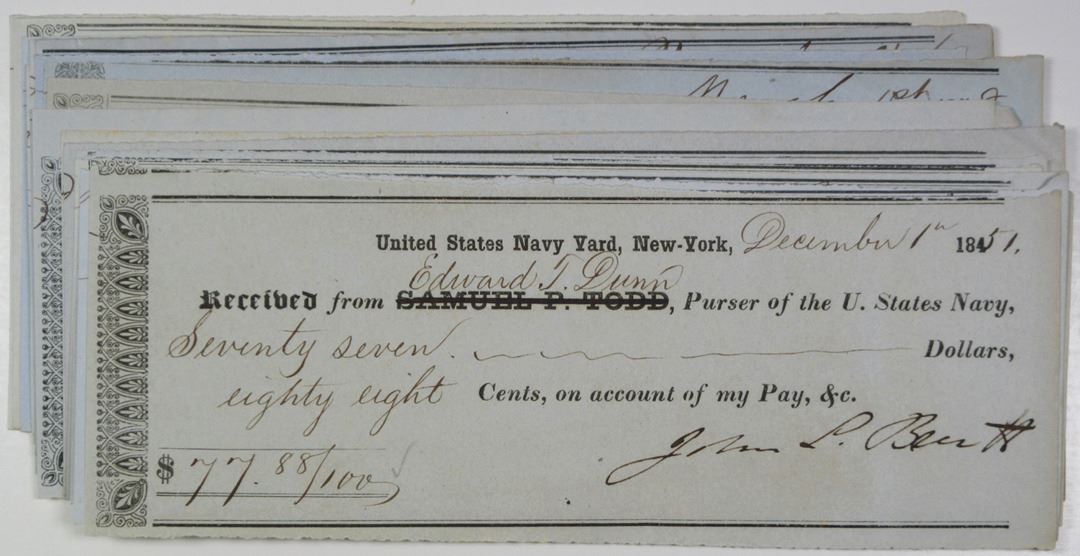 March 1st
United States Navy Yard, New-York, December 1st 1851.
Edward T. Dunn
Received from SAMUEL P. TODD, Purser of the U. States Navy,
Seventy seven. Dollars,
eighty eight Cents, on account of my Pay, &c.
John L.
$ 77.88/100